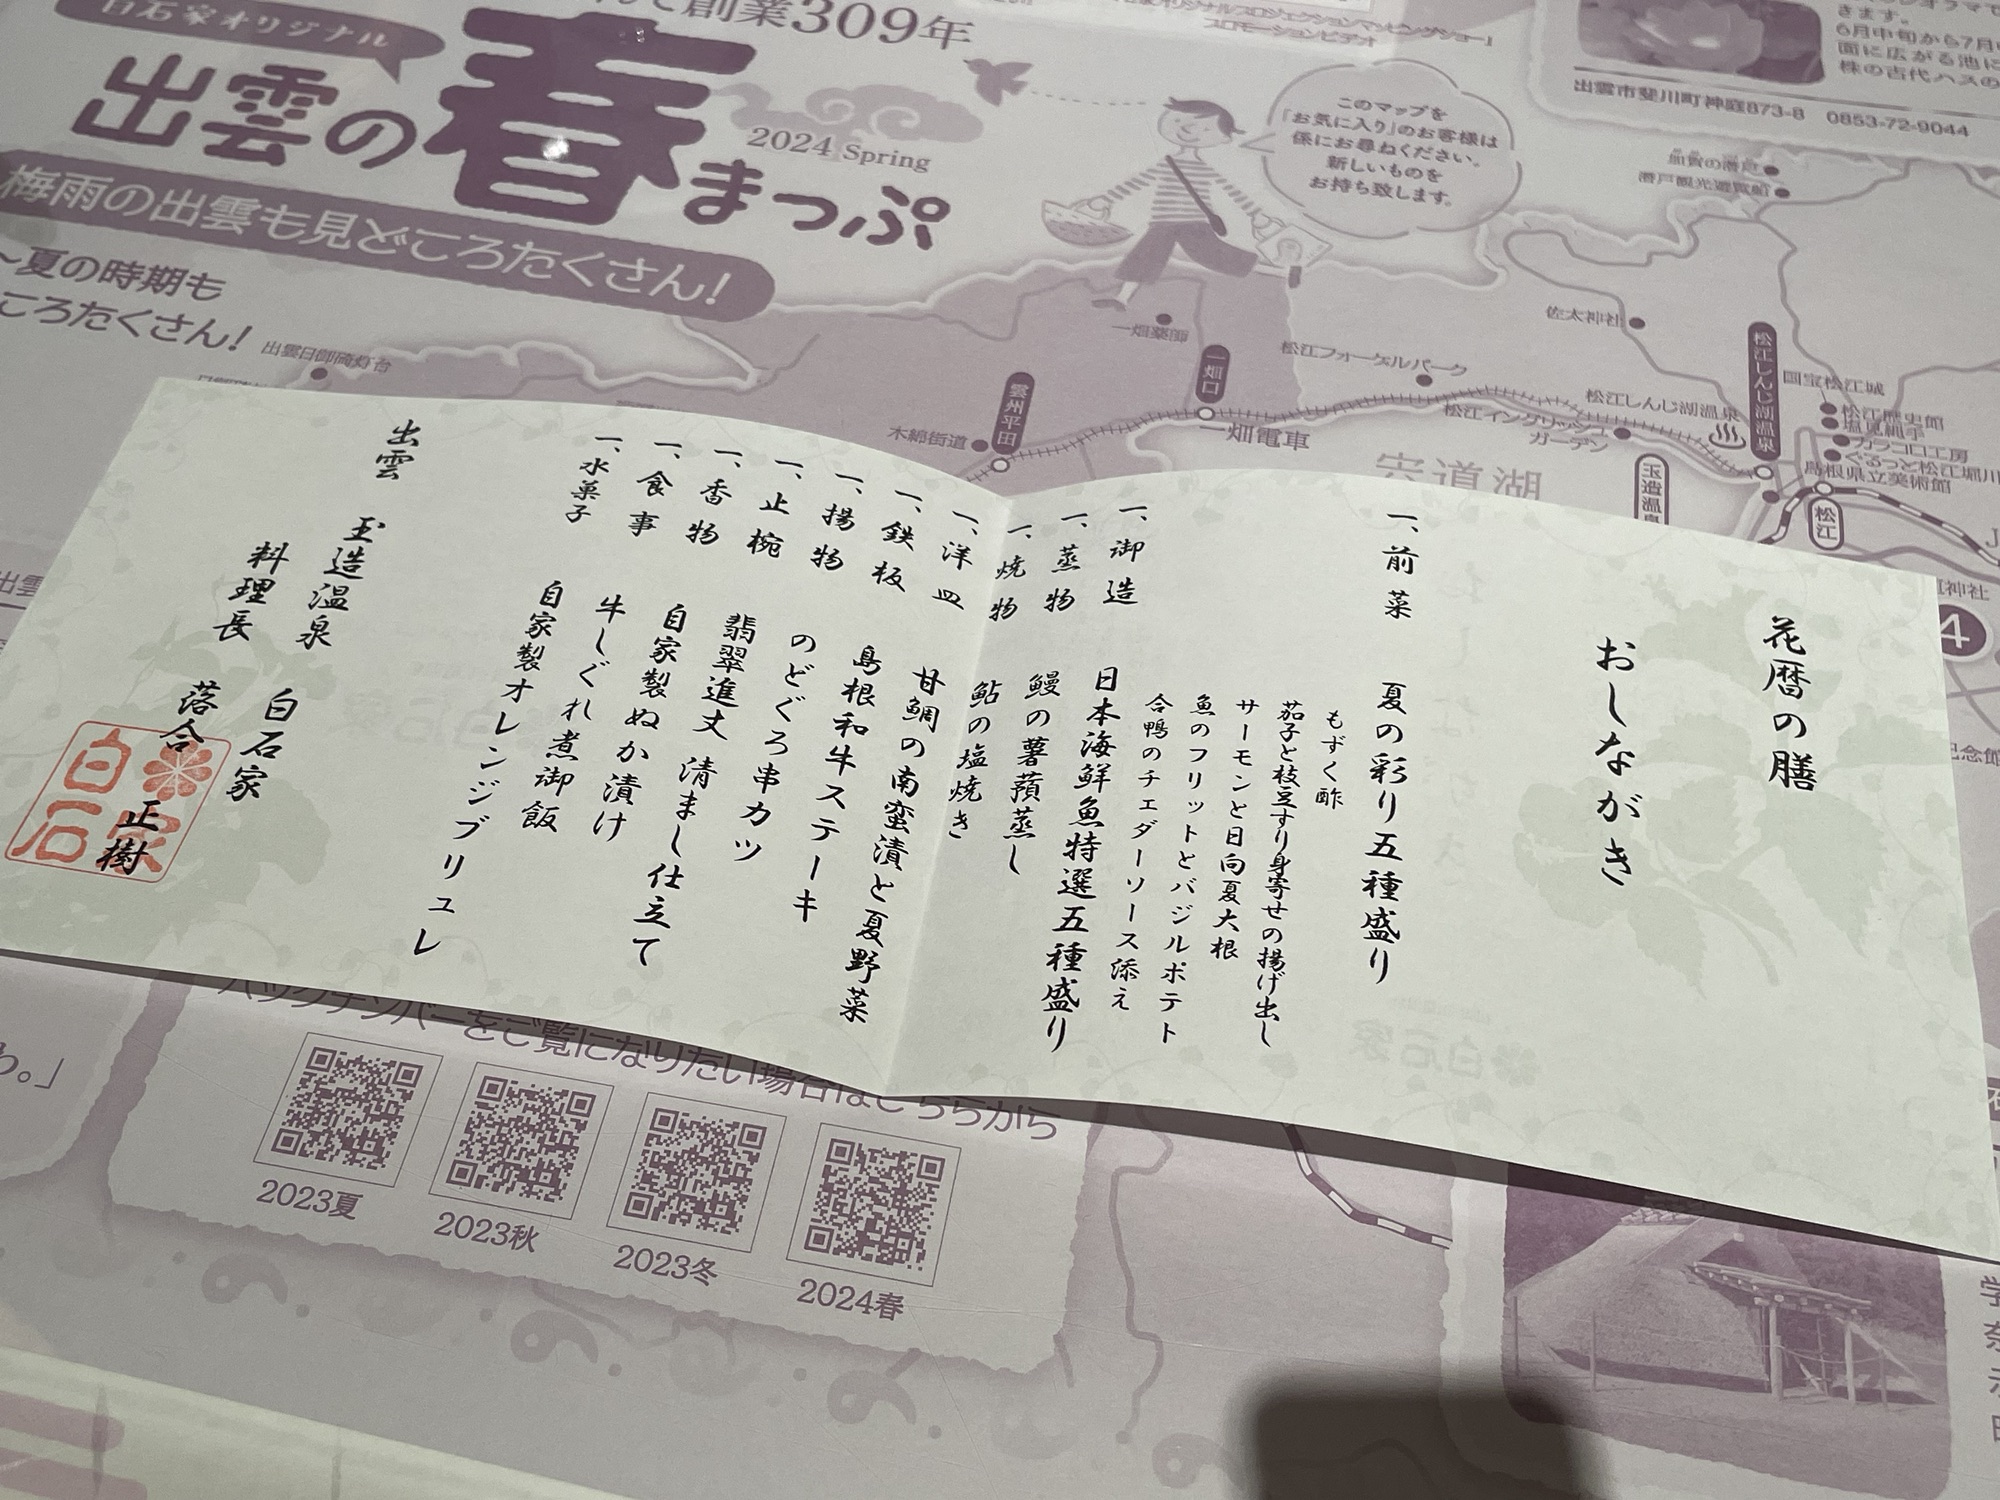 白石家オリジナル
創業309年
出雲の春まっぷ
2024 Spring
梅雨の出雲も見どころたくさん!
~夏の時期も
ころたくさん!
このマップを
「お気に入り」のお客様は
係にお尋ねください。
新しいものを
お持ち致します。
オリジナルプロジェクションマッピングショー」
プロモーションビデオ
きます。
6月中旬から7月
面に広がる池に
株の古代ハスの
出雲市斐川町神庭873-8 0853-72-9044
加賀の潜戸
潜戸観光遊覧船
佐太神社
一畑薬師
一畑口
松江フォーゲルパーク
出雲日御碕灯台
雲州平田
木綿街道
一畑電車
松江イングリッシュ
ガーデン
松江しんじ湖温泉
松江しんじ湖温泉
国宝松江城
松江歴史館
塩見縄手
カラコロ工房
ぐるっと松江堀川
島根県立美術館
宍道湖
玉造温泉
松江
神社
4
花暦の膳
おしながき
一、前菜 夏の彩り五種盛り
もずく酢
茄子と枝豆すり身寄せの揚げ出し
サーモンと日向夏大根
魚のフリットとバジルポテト
合鴨のチェダーソース添え
一、御造 日本海鮮魚特選五種盛り
一、蒸物 鰻の薯蕷蒸し
一、焼物 鮎の塩焼き
一、洋皿 甘鯛の南蛮漬と夏野菜
一、鉄板 島根和牛ステーキ
一、揚物 のどぐろ串カツ
一、止椀 翡翠進丈 清まし仕立て
一、香物 自家製ぬか漬け
一、食事 牛しぐれ煮御飯
一、水菓子 自家製オレンジブリュレ
出雲 玉造温泉 白石家
料理長 落合 正樹
白石家
バックナンバーをご覧になりたい場合はこちらから
2023夏
2023秋
2023冬
2024春